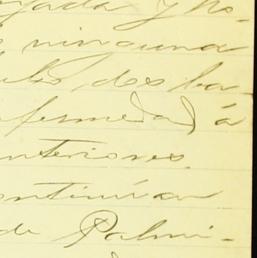 jada y he-
ninguna
des ba-
fermedad á
nteriores
ontinúan
de Palmi-